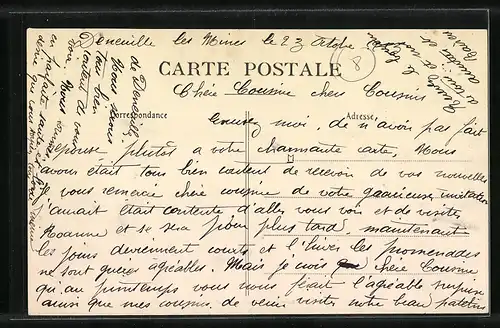 Deneuille les Mines le 23 Octobre
CARTE POSTALE
Correspondance
Adresse
8
Chère Cousine cher Cousins
Excusez moi, de n avoir pas fait
reponse plutôt a votre charmante carte, Nous
avons était tous bien content de recevoir de vos nouvelles
Je vous remercie chère cousine de votre gracieuse invitation
j'aurait était contente d'aller vous voir et de visiter
Roanne et se sera pour plus tard. maintenant
les jours deviennent courts et l'hiver les promenades
ne sont guères agréables. Mais je crois que chère Cousine
qu'au printemps vous nous ferait l'agréable surprise
ainsi que mes cousins de venir visiter notre beau patelin
de Deneuille.
Nous sommes
tous bien
content de vous
voir. Nous
en parfaite santé et je
désire que vous soyez de même